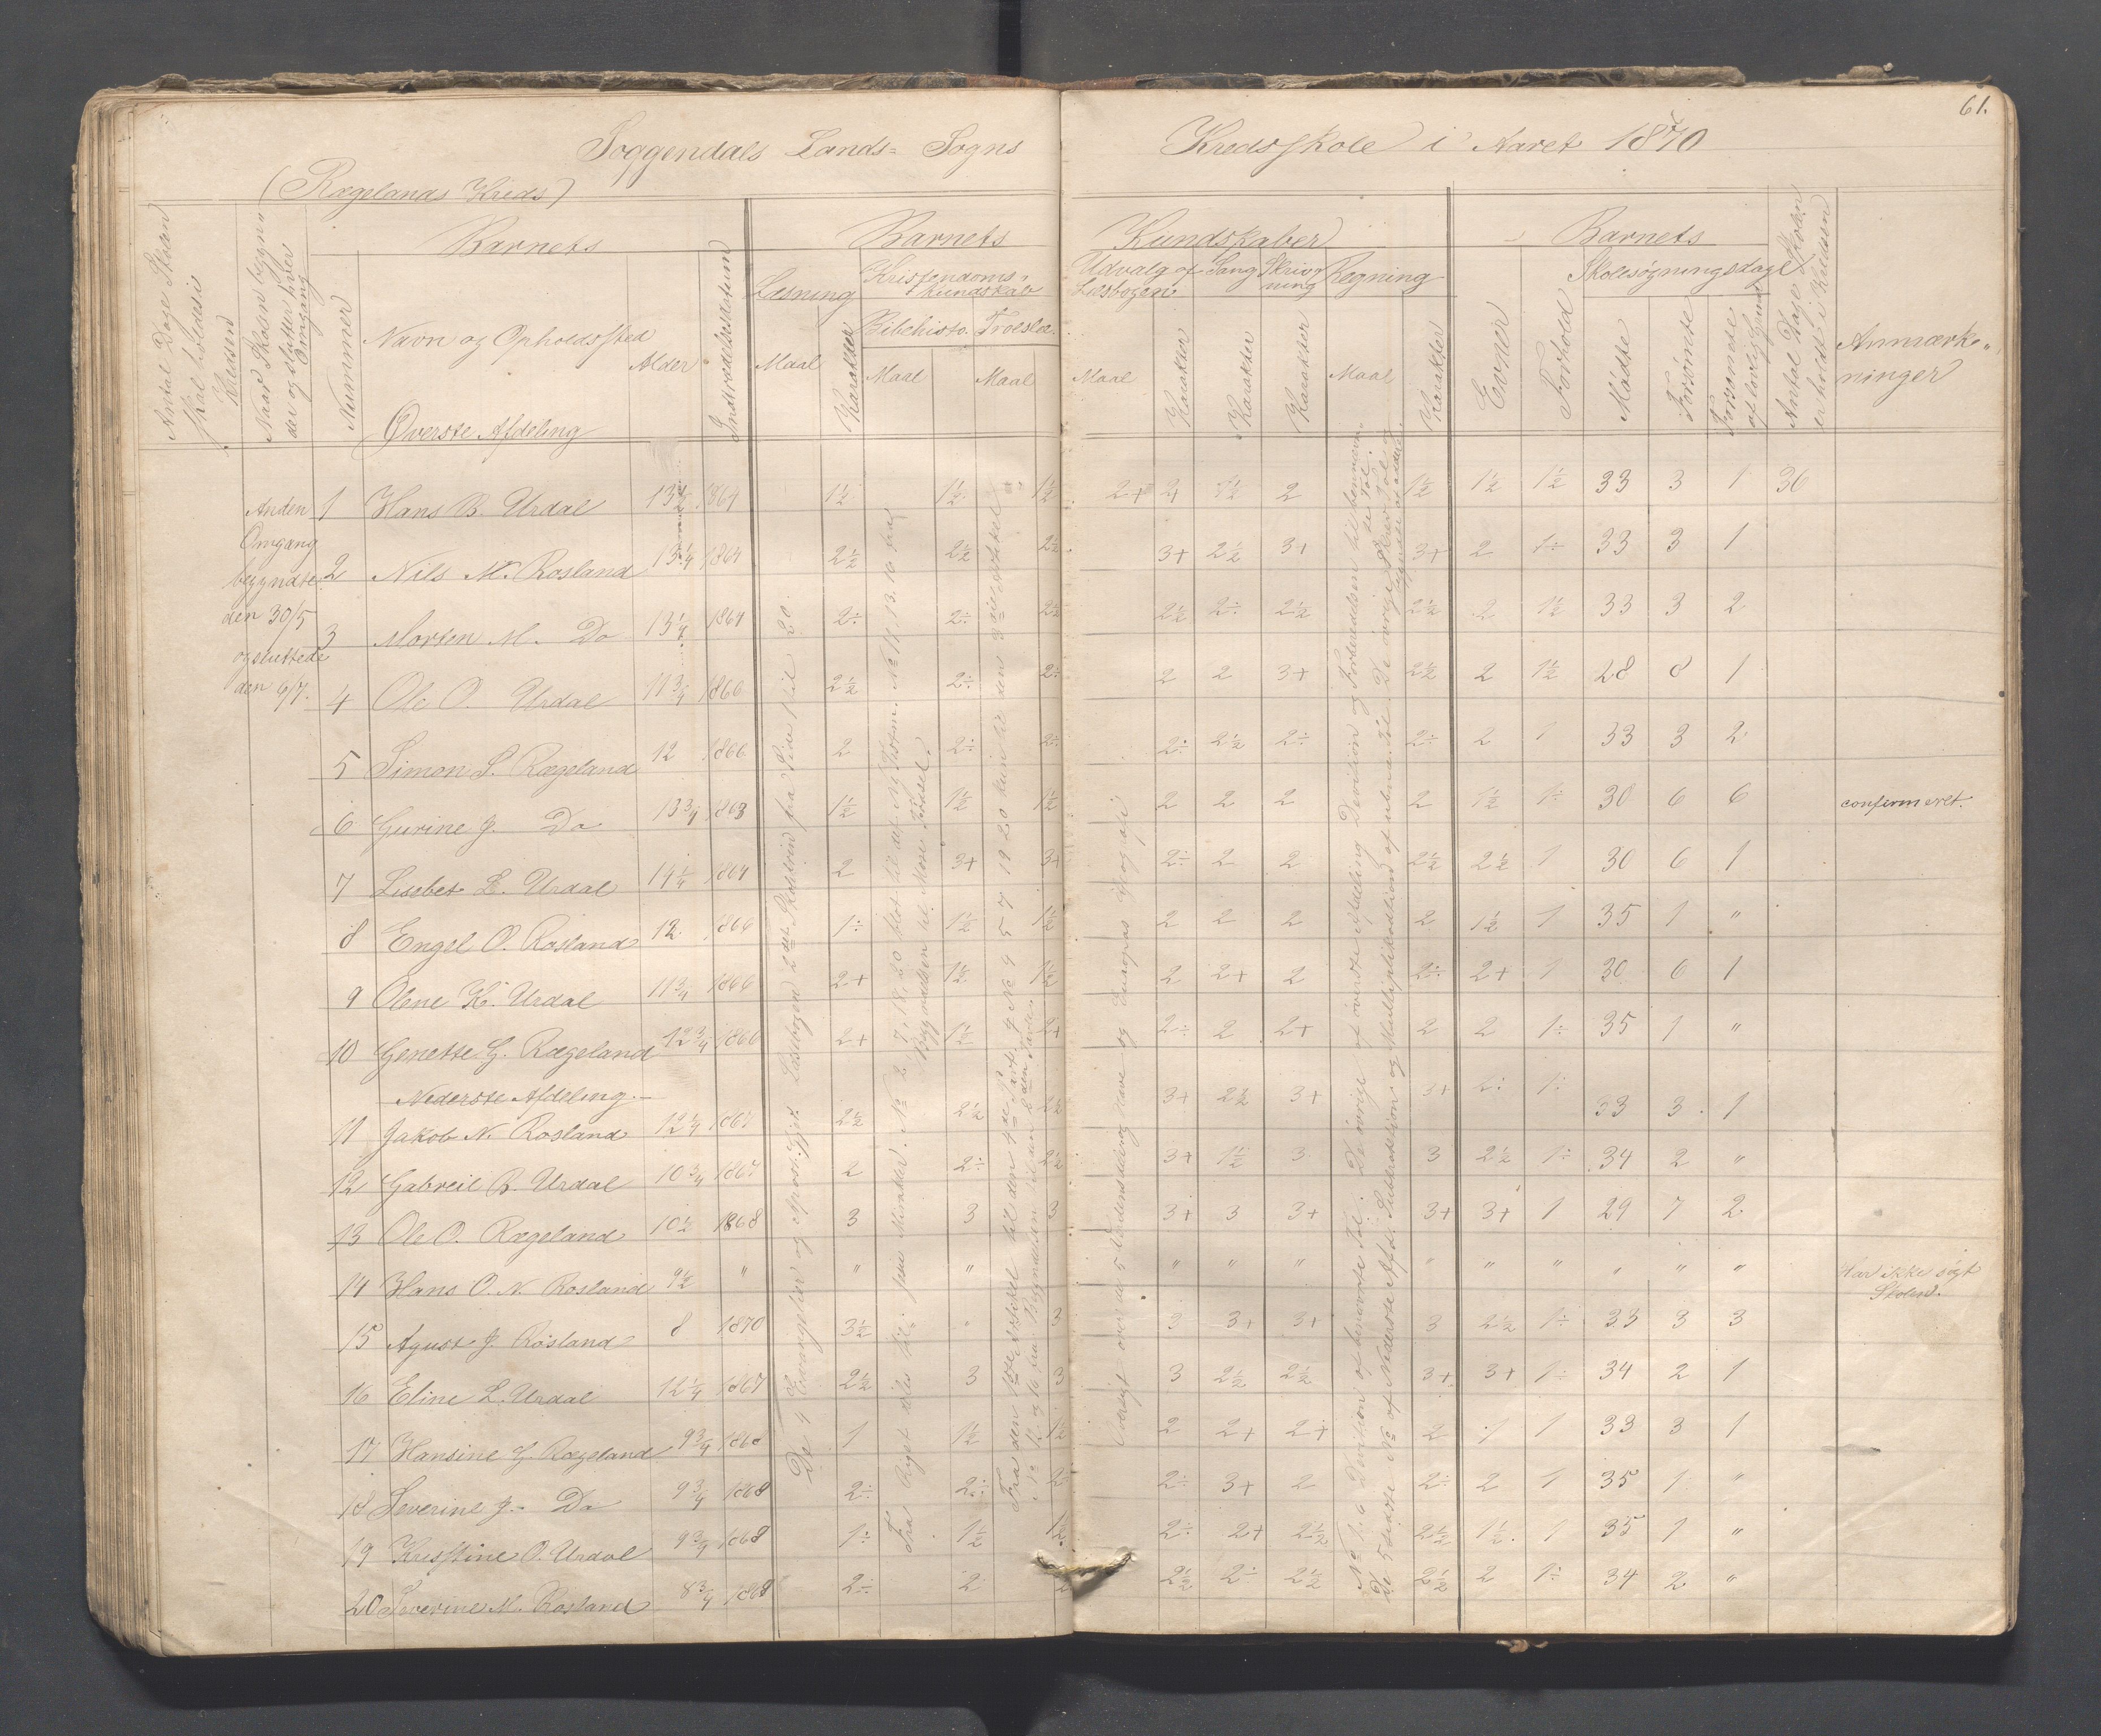 61.
Soggendals Lands= Sogns Kredsskole i Aaret 1870
(Rægelands Kreds)
Antal Dage Skolen skal holdes i Kredsen
Naar Skolen begyn„der og slutter hver Omgang
Nummer
Barnets
Navn og Opholdssted
Alder
Indtrædelsesdatum
Barnets Kundskaber
Læsning
Maal
Karakter
Kristendoms-kundskab
Bibelhisto. Troeslæ.
Maal
Maal
Udvalg af Læsbogen
Maal
Karakter
Sang
Karakter
Skriv-ning
Karakter
Regning
Maal
Karakter
Barnets
Evner
Forhold
Skolesøgningsdage
Mødte
Forsømte
Forsømte af lovlig Grund
Antal Dage Skolen er holdt i Kredsen
Anmærk-„ninger
Øverste Afdeling
Anden
Omgang
begyndte
den 30/5
og sluttede
den 9/7.
1 Hans B. Urdal 13½ 1864 1½ 1½ 1½ 2+ 2 1½ 2 1½ 1½ 1½ 33 3 1 36
2 Nils M. Rosland 13¼ 1864 2½ 2½ 2½ 3+ 2½ 3+ 3+ 2 1÷ 33 3 1
3 Morten M. Do 13¼ 1864 2÷ 2÷ 2½ 2½ 2÷ 2½ 2½ 2 1½ 33 3 2
4 Ole O. Urdal 11¾ 1866 2½ 2÷ 2÷ 2 2 3+ 2½ 2 1½ 28 8 1
5 Simon S. Rægeland 12 1866 2 2÷ 2÷ 2÷ 2½ 2÷ 2÷ 2 1 33 3 2
6 Gurine J. Do 13¾ 1863 1½ 1½ 1½ 2 2 2 2 1½ 1÷ 30 6 6 confermeret.
7 Lisebet L. Urdal 14¼ 1864 2 3+ 3+ 2÷ 2 2 2½ 2½ 1 30 6 1
8 Engel O. Rosland 12 1866 1÷ 1½ 1½ 2 2 2 2 1½ 1 35 1 "
9 Olene K. Urdal 11¾ 1866 2+ 1½ 1½ 2 2+ 2 2÷ 2+ 1 30 6 1
10 Genette G. Rægeland 12¾ 1866 2+ 1½ 2+ 2÷ 2 2+ 2 2 1÷ 35 1 "
Nederste Afdeling.
11 Jakob N. Rosland 12¼ 1867 2½ 2½ 2½ 3+ 2½ 3+ 3+ 2÷ 1÷ 33 3 1
12 Gabreil B. Urdal 10¾ 1867 2 2÷ 2½ 3+ 1½ 3 3 2½ 1÷ 34 2 "
13 Ole O. Rægeland 10½ 1868 3 3 3 3+ 3 3+ 3+ 3+ 1 29 7 2
14 Hans O. N. Rosland 9½ " " " " " " " " " " " " Har ikke søgt Skolen.
15 Agust J. Rosland 8 1870 3½ " 3 3 3+ 3+ 3 2½ 1÷ 33 3 3
16 Eline L. Urdal 12¼ 1867 2½ 3 3 3 2½ 2½ 3+ 3+ 1÷ 34 2 1
17 Hansine G. Rægeland 9¾ 1868 1 1½ 1½ 2 2+ 2+ 2 1 1 33 3 1
18 Severine J. Do 9¾ 1868 2÷ 2÷ 2÷ 2÷ 3+ 2 2÷ 2 1 35 1 "
19 Kristine O. Urdal 9¾ 1868 1÷ 1½ 1½ 2÷ 2+ 2½ 2½ 1½ 1 35 1 "
20 Severine M. Rosland 8¾ 1868 2÷ 2 2 2½ 2÷ 2½ 2½ 2 1÷ 34 2 "
De 4 Evangelier og Apos. Gjer. Læsebogen 2det Skoletrin fra Side 1 til 20.